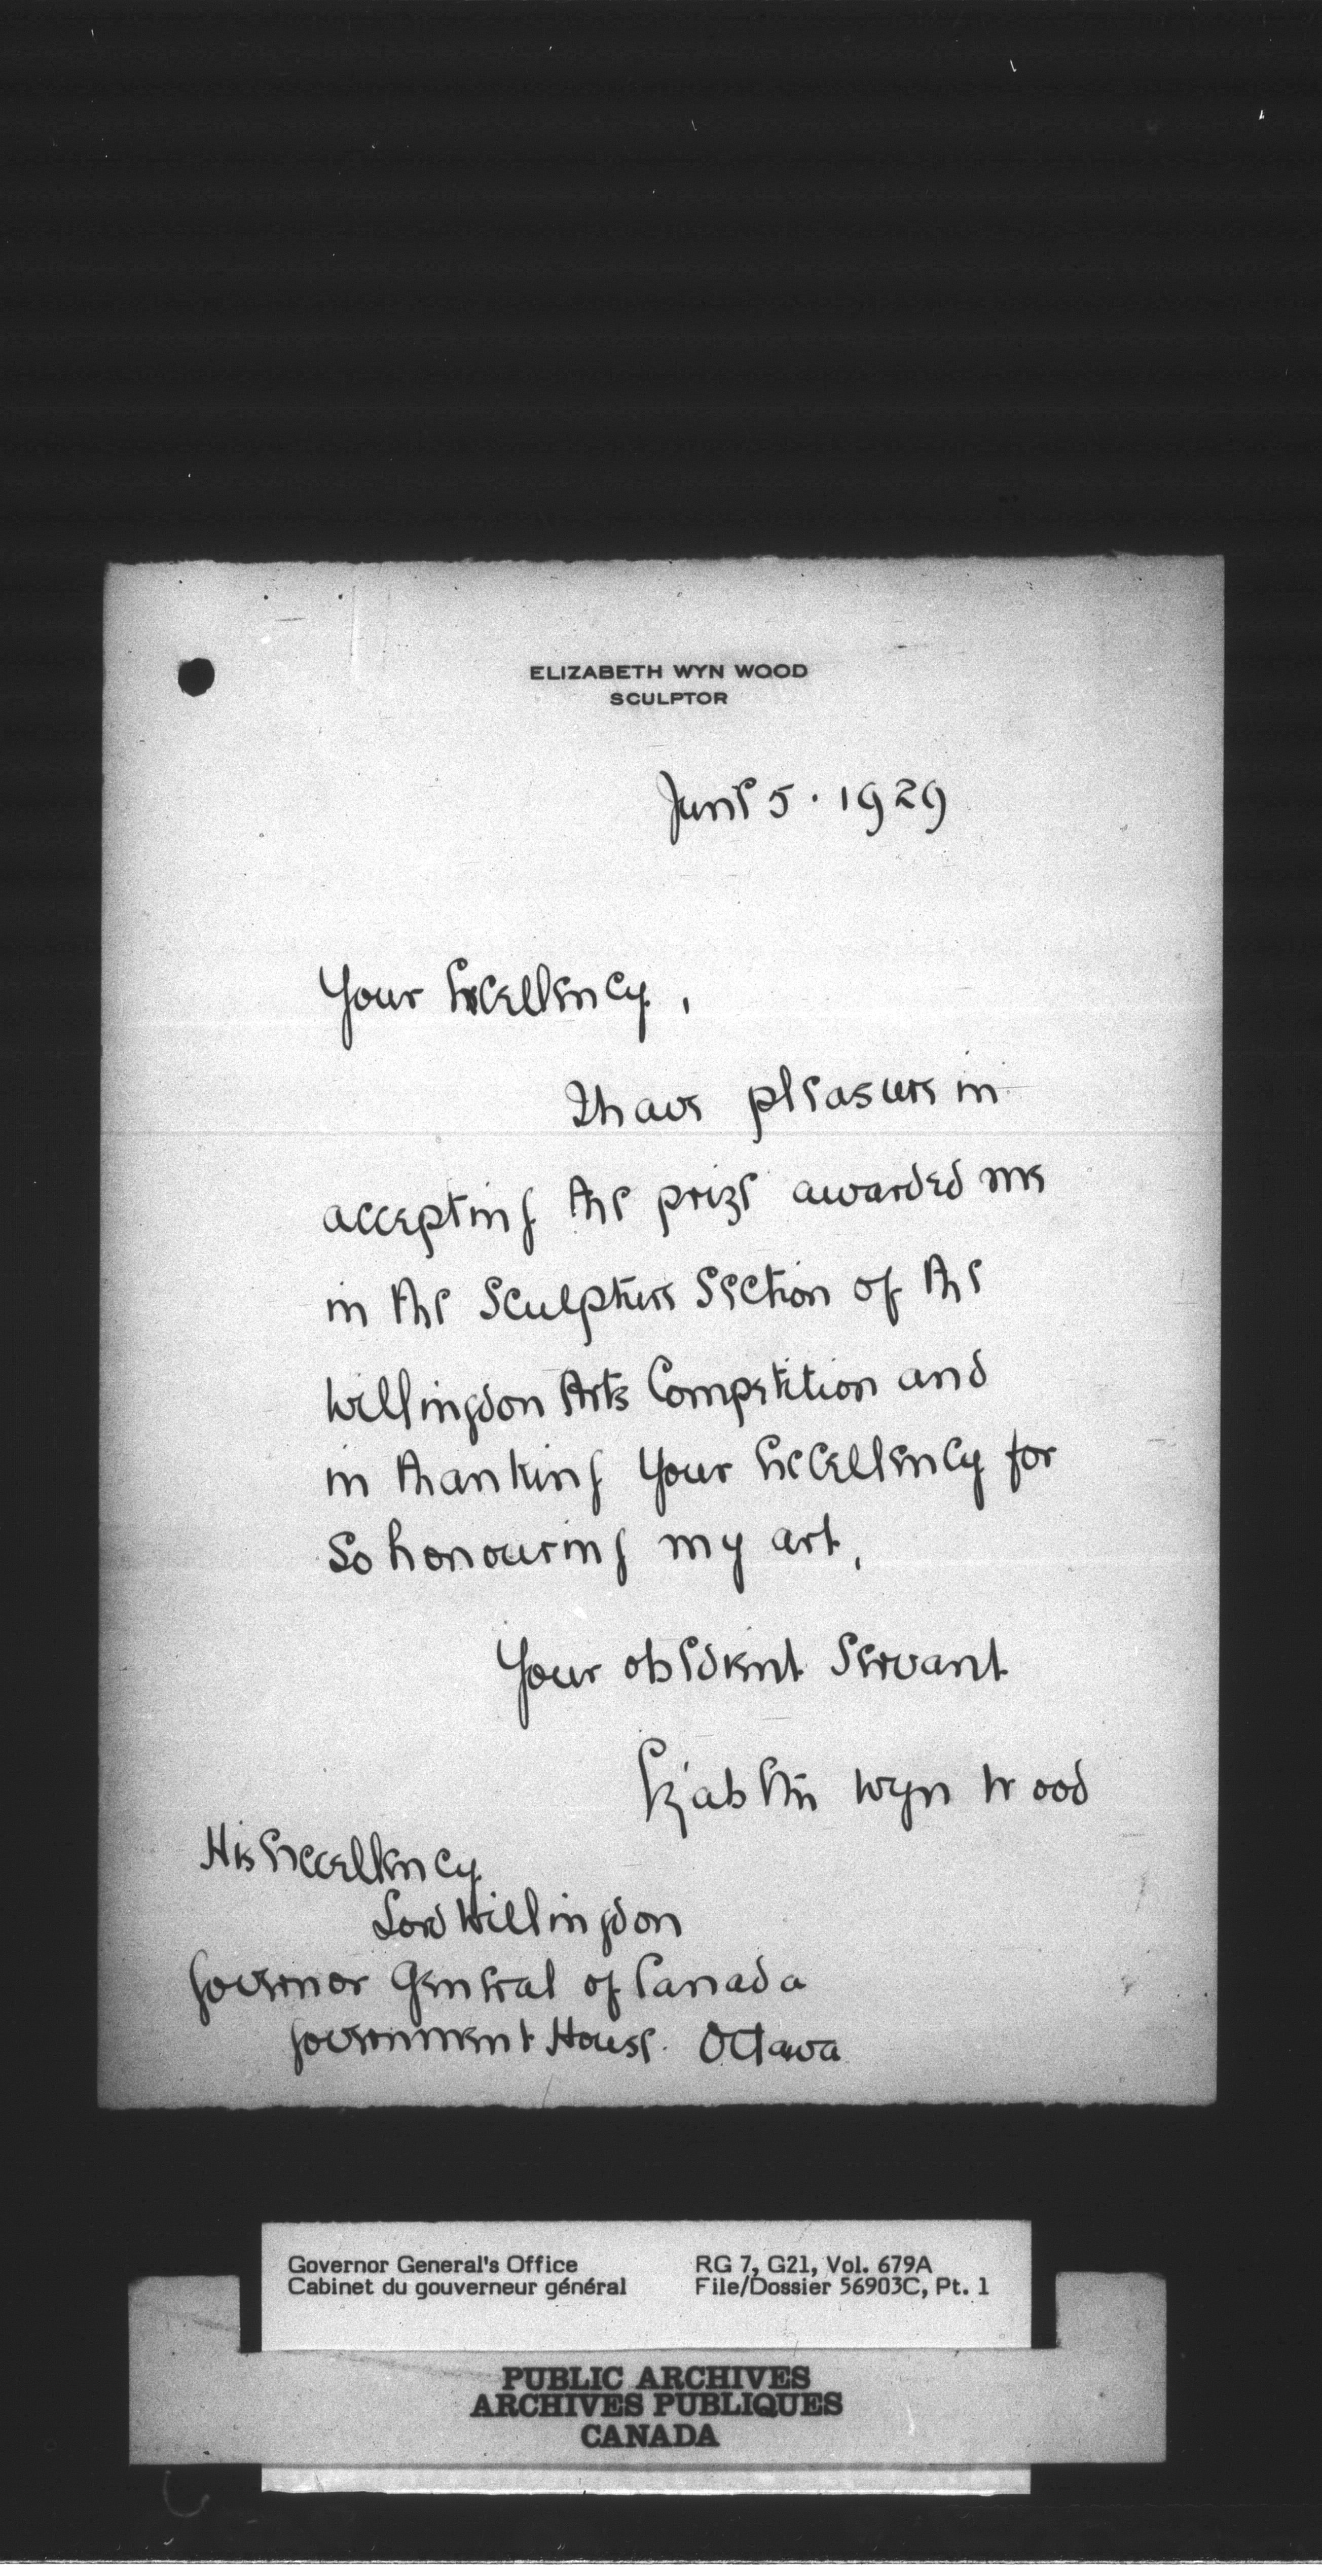 ELIZABETH WYN WOOD
SCULPTOR
June 5 · 1929
Your Excellency,
I have pleasure in
accepting the prize awarded me
in the Sculpture Section of the
Willingdon Arts Competition and
in thanking Your Excellency for
so honouring my art,
Your obedient Servant
Elizabeth Wyn Wood
His Excellency
Lord Willingdon
Governor General of Canada
Government House. Ottawa
Governor General's Office RG 7, G21, Vol. 679A
Cabinet du gouverneur général File/Dossier 56903C, Pt. 1
PUBLIC ARCHIVES
ARCHIVES PUBLIQUES
CANADA